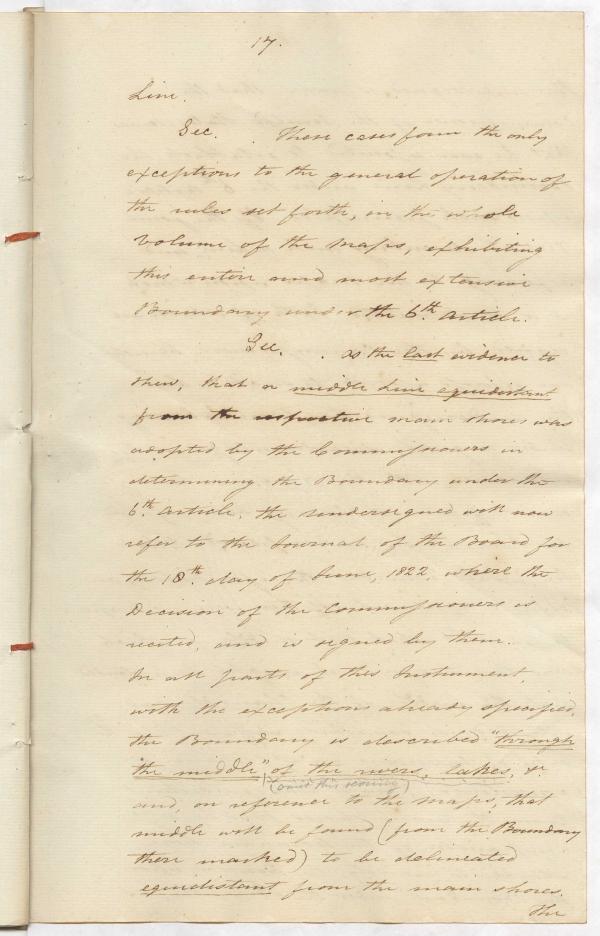 17.
Line.
Sec. . These cases form the only
exceptions to the general operation of
the rules set forth, in the whole
volume of the maps, exhibiting
this entire and most extensive
Boundary under the 6th. article.
Sec. . As the last evidence to
shew, that a middle Line equidistant
from the respective main shores was
adopted by the Commissioners in
determining the Boundary under the
6th. article, the undersigned will now
refer to the Journal of the Board for
the 18th. day of June, 1822, where the
Decision of the Commissioners is
recited, and is signed by them.
In all parts of this Instrument,
with the exceptions already specified,
the Boundary is described "through
the middle" of the rivers, lakes, &c
(omit this scoring)
and, on reference to the maps, that
middle will be found (from the Boundary
there marked) to be delineated
equidistant from the main shores.
The